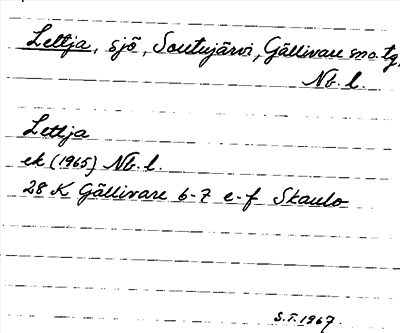 Lettja, sjö, Soutujärvi, Gällivare sn o. tg,
Nb. l.
Lettja
ek (1965) Nb. l.
28 K Gällivare 6-7 e-f Skaulo
S.T. 1967.